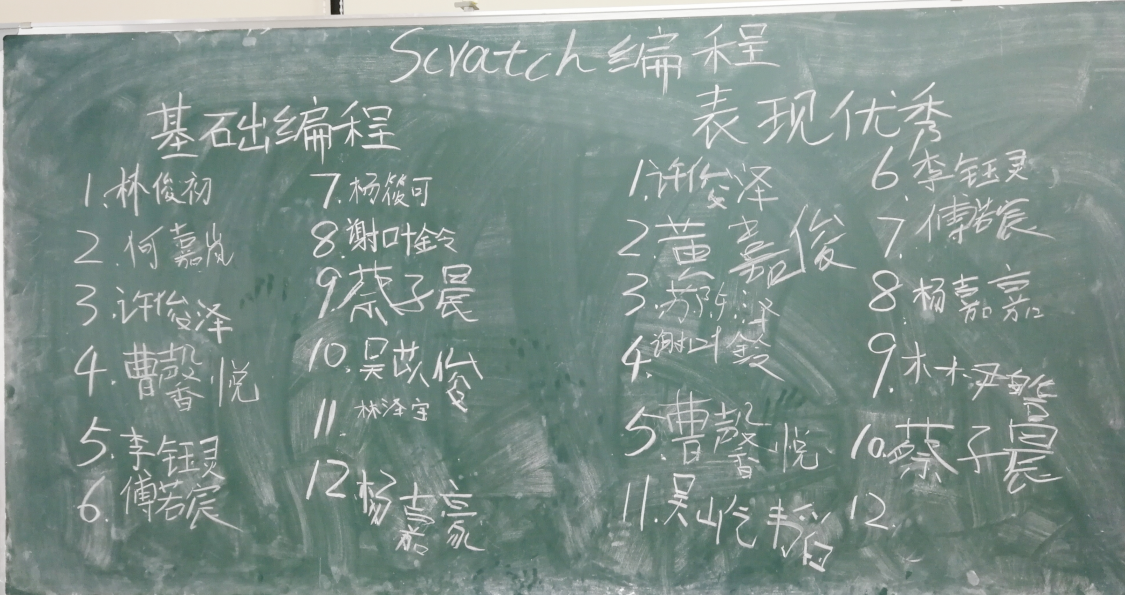 Scratch编程
基础出编程
1.林俊初
2.何嘉岚
3.许俊泽
4.曹馨悦
5.李钰灵
6.傅若宸
7.杨筱可
8.谢叶铃
9.蔡子晨
10.吴苡俊
11.林泽宇
12.杨嘉豪
表现优秀
1.许俊泽
2.黄嘉俊
3.苏 泽
4.谢叶铃
5.曹馨悦
6.李钰灵
7.傅若宸
8.杨嘉嘉
9.林
10.蔡子晨
11.吴
12.